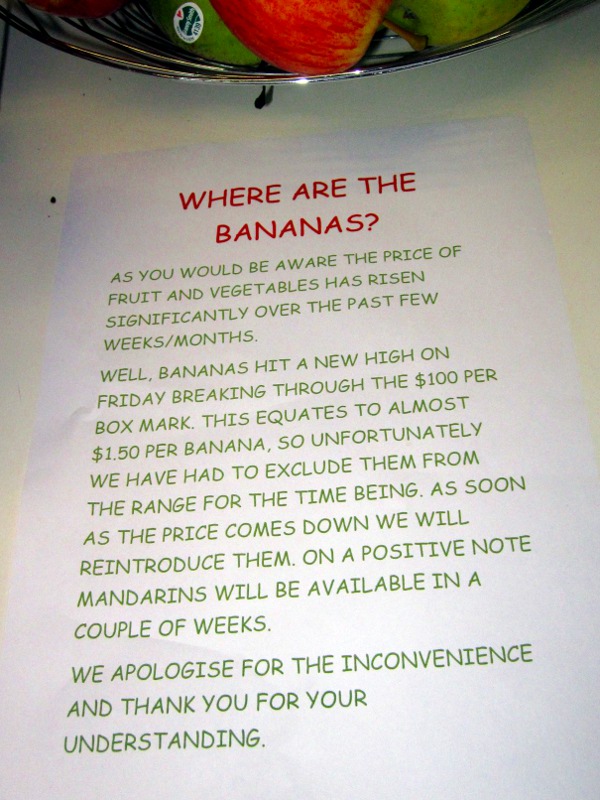 WHERE ARE THE
BANANAS?
AS YOU WOULD BE AWARE THE PRICE OF
FRUIT AND VEGETABLES HAS RISEN
SIGNIFICANTLY OVER THE PAST FEW
WEEKS/MONTHS.
WELL, BANANAS HIT A NEW HIGH ON
FRIDAY BREAKING THROUGH THE $100 PER
BOX MARK. THIS EQUATES TO ALMOST
$1.50 PER BANANA, SO UNFORTUNATELY
WE HAVE HAD TO EXCLUDE THEM FROM
THE RANGE FOR THE TIME BEING. AS SOON
AS THE PRICE COMES DOWN WE WILL
REINTRODUCE THEM. ON A POSITIVE NOTE
MANDARINS WILL BE AVAILABLE IN A
COUPLE OF WEEKS.
WE APOLOGISE FOR THE INCONVENIENCE
AND THANK YOU FOR YOUR
UNDERSTANDING.